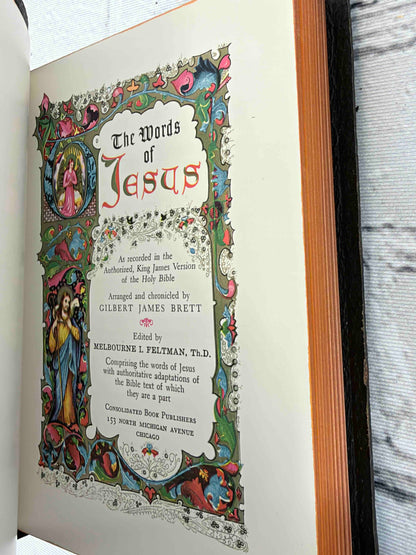 The Words
of
Jesus
As recorded in the
Authorized, King James Version
of the Holy Bible
Arranged and chronicled by
GILBERT JAMES BRETT
Edited by
MELBOURNE I. FELTMAN, Th.D.
Comprising the words of Jesus
with authoritative adaptations of
the Bible text of which
they are a part
CONSOLIDATED BOOK PUBLISHERS
153 NORTH MICHIGAN AVENUE
CHICAGO